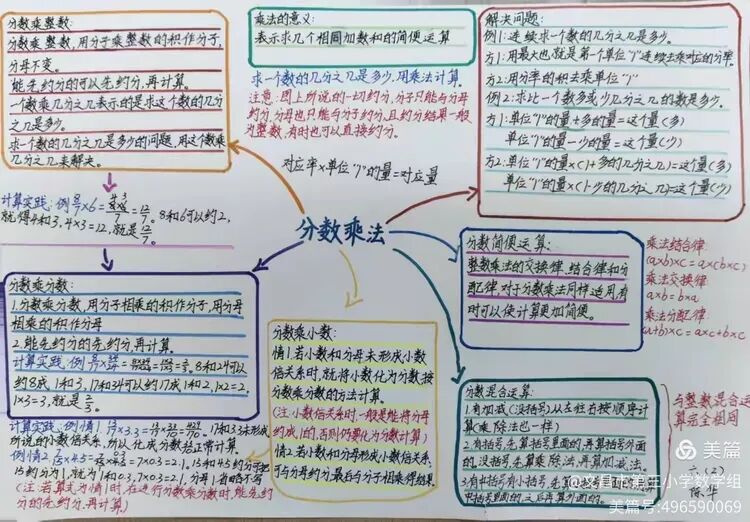 分数乘整数:
分数乘整数,用分子乘整数的积作分子,
分母不变。
能先约分的可以先约分,再计算。
一个数乘几分之几表示的是求这个数的几分
之几是多少。
求一个数的几分之几是多少的问题,用这个数乘
几分之几来解决。
乘法的意义:
表示求几个相同加数和的简便运算
求一个数的几分之几是多少,用乘法计算。
注意:图上所说的一切约分,分子只能与分母
约分,分母也只能与分子约分,且约分结果一般
为整数,有时也可以直接约分。
对应率×单位"1"的量=对应量
解决问题:
例1:连续求一个数的几分之几是多少。
方1:用最大也就是第一个单位"1"连续去乘对应的分率。
方2:用分率的积去乘单位"1"
例2:求比一个数多或少几分之几的数是多少。
方1:单位"1"的量+多的量=这个量(多)
单位"1"的量-少的量=这个量(少)
方2:单位"1"的量×(1+多的几分之几)=这个量(多)
单位"1"的量×(1-少的几分之几)=这个量(少)
计算实践:例
8和6可以约2,
就得4和3,4×3=12,就是12/7。
分数乘法
分数简便运算:
整数乘法的交换律、结合律和分
配律,对于分数乘法同样适用,有
时可以使计算更加简便。
乘法结合律
(a×b)×c=a×(b×c)
乘法交换律
a×b=b×a
乘法分配律
(a+b)×c=a×c+b×c
分数乘分数:
1.分数乘分数,用分子相乘的积作分子,用分母
相乘的积作分母
2.能先约分的先约分,再计算。
计算实践:例
8和24可以
约8成,1和3,17和34可以约17成1和2,1×2=2,
1×3=3,就是2/3。
分数乘小数:
情1.若小数和分母未形成小数
倍关系时,就将小数化为分数,按
分数乘分数的方法计算。
(注:小数倍关系时,一般是能将分母
约成1的,否则仍要化为分数计算)
情2.若小数和分母形成小数倍关系,
可与分母约分,最后与分子相乘得结果
计算实践:例情1.
17和3.3未形成
所说的小数倍关系,所以化成分数括正常计算。
例情2.
=7×0.3=2.1,15和4.5约分于把
15约分为1,就为1和0.3,7×0.3=2.1,分母1,省略不写
(注:若算式为情1时,在进行分数乘分数时,能先约
分的先约分,再计算)
分数混合运算:
1.有加减(没括号)从左往右按顺序计
算(乘除法也一样)
2.有括号,先算括号里面的,再算括号外面
的,没括号,先算乘除法,再算加减法。
3.有中括号有小括号,先算
中括号里的,之后再算外面的。
与整数混合运
算完全相同
六.(2)
陈华
美篇
小学数学组
美篇号:496590069